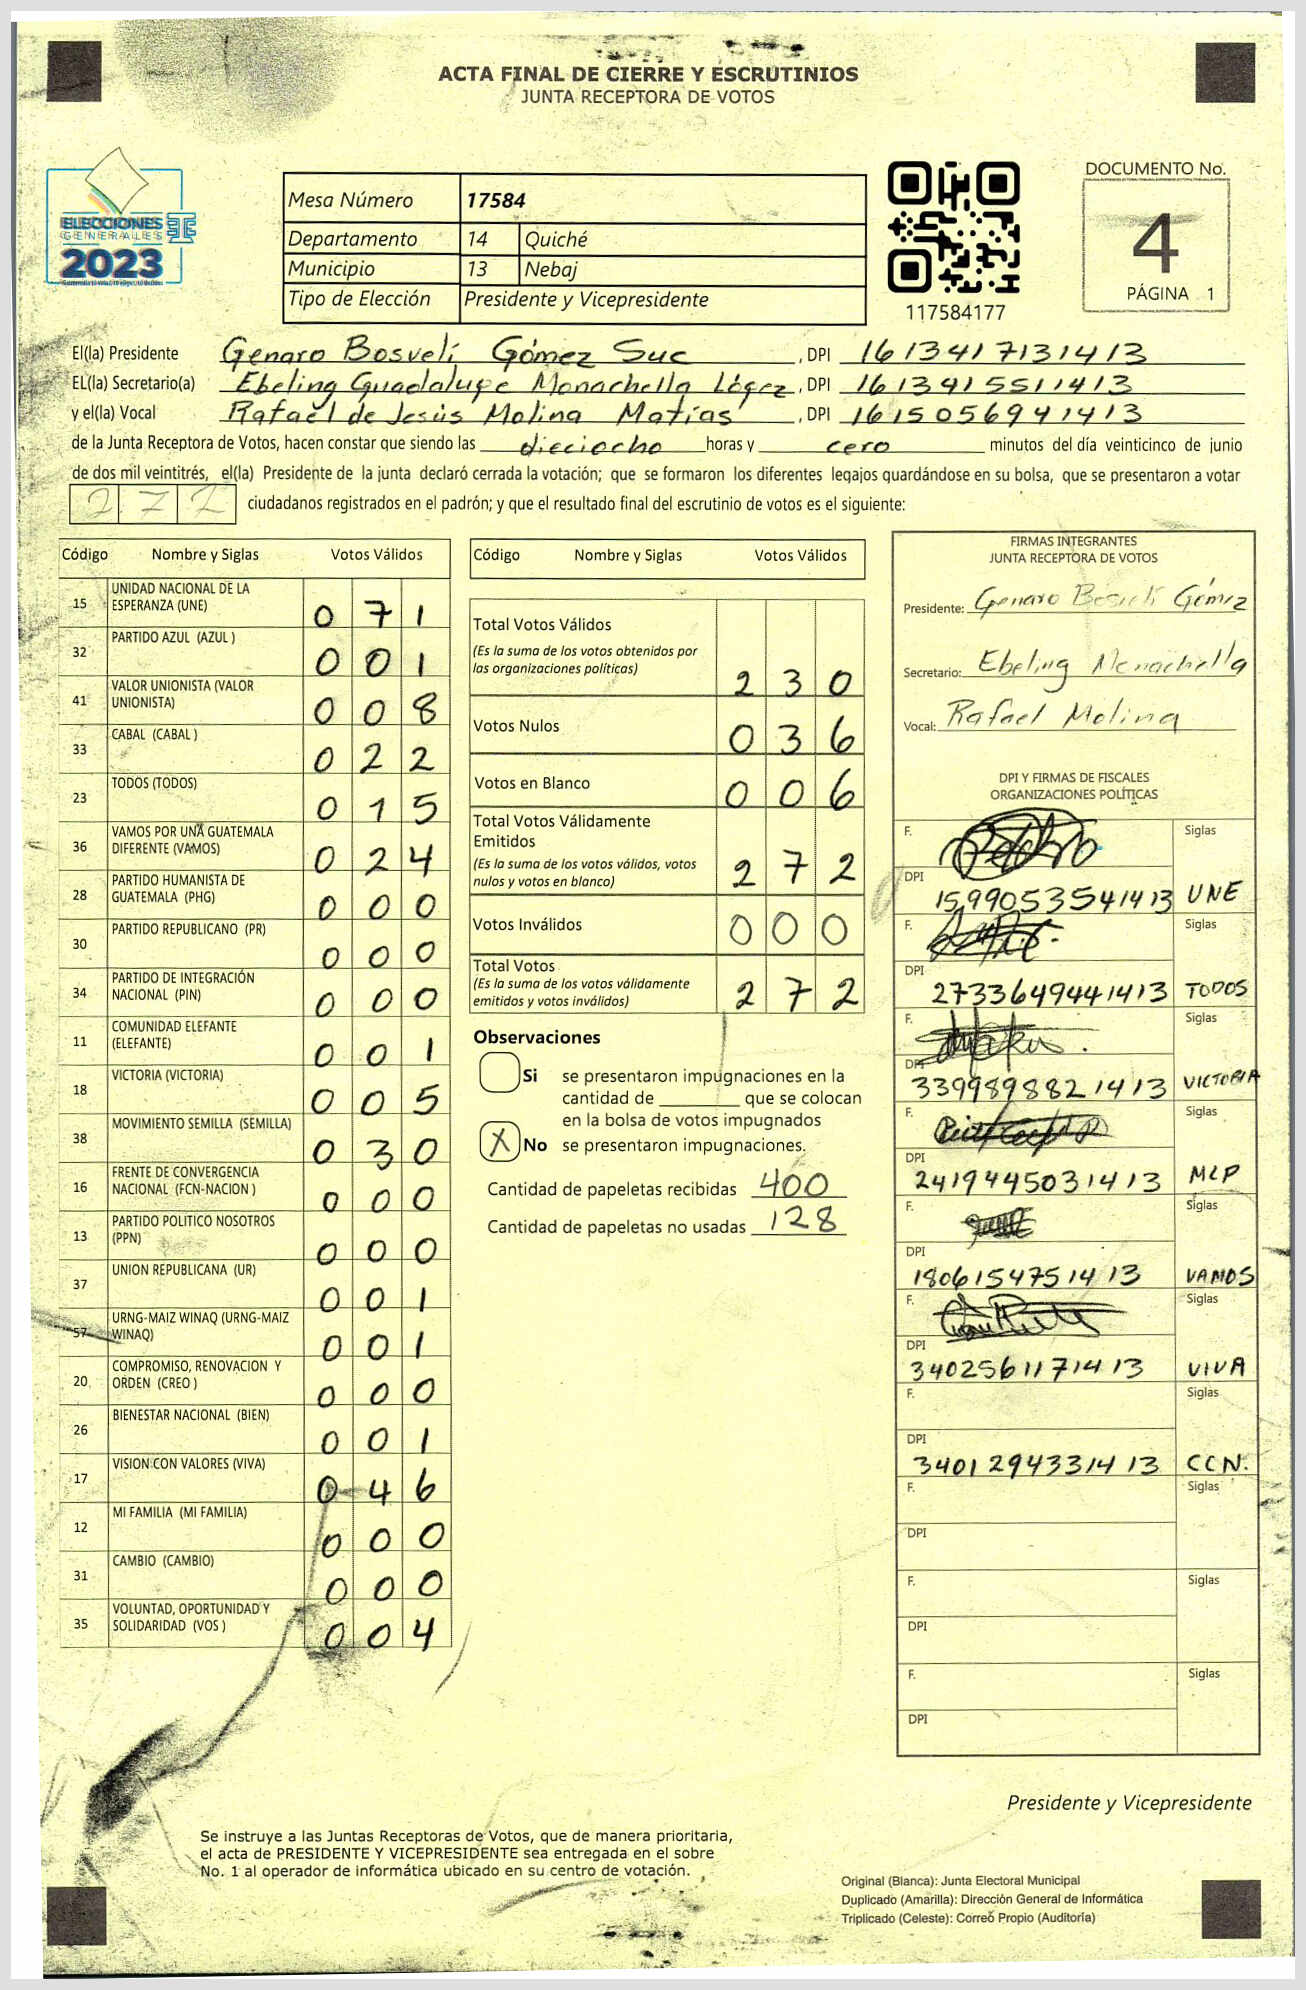 ACTA FINAL DE CIERRE Y ESCRUTINIOS
JUNTA RECEPTORA DE VOTOS
ELECCIONES
GENERALES
2023
Mesa Número 17584
Departamento 14 Quiché
Municipio 13 Nebaj
Tipo de Elección Presidente y Vicepresidente
117584177
DOCUMENTO No.
4
PÁGINA 1
El(la) Presidente Genaro Bosvelí Gómez Suc, DPI 1613417131413
EL(la) Secretario(a) Ebeling Guadalupe Monachella López, DPI 1613415511413
y el(la) Vocal Rafael de Jesús Molina Matías, DPI 1615056941413
de la Junta Receptora de Votos, hacen constar que siendo las dieciocho horas y cero minutos del día veinticinco de junio
de dos mil veintitrés, el(la) Presidente de la junta declaró cerrada la votación; que se formaron los diferentes legajos guardándose en su bolsa, que se presentaron a votar
272 ciudadanos registrados en el padrón; y que el resultado final del escrutinio de votos es el siguiente:
Código Nombre y Siglas Votos Válidos
15 UNIDAD NACIONAL DE LA ESPERANZA (UNE) 0 7 1
32 PARTIDO AZUL (AZUL ) 0 0 1
41 VALOR UNIONISTA (VALOR UNIONISTA) 0 0 8
33 CABAL (CABAL ) 0 2 2
23 TODOS (TODOS) 0 1 5
36 VAMOS POR UNA GUATEMALA DIFERENTE (VAMOS) 0 2 4
28 PARTIDO HUMANISTA DE GUATEMALA (PHG) 0 0 0
30 PARTIDO REPUBLICANO (PR) 0 0 0
34 PARTIDO DE INTEGRACIÓN NACIONAL (PIN) 0 0 0
11 COMUNIDAD ELEFANTE (ELEFANTE) 0 0 1
18 VICTORIA (VICTORIA) 0 0 5
38 MOVIMIENTO SEMILLA (SEMILLA) 0 3 0
16 FRENTE DE CONVERGENCIA NACIONAL (FCN-NACION ) 0 0 0
13 PARTIDO POLITICO NOSOTROS (PPN) 0 0 0
37 UNION REPUBLICANA (UR) 0 0 1
57 URNG-MAIZ WINAQ (URNG-MAIZ WINAQ) 0 0 1
20 COMPROMISO, RENOVACION Y ORDEN (CREO ) 0 0 0
26 BIENESTAR NACIONAL (BIEN) 0 0 1
17 VISION CON VALORES (VIVA) 0 4 6
12 MI FAMILIA (MI FAMILIA) 0 0 0
31 CAMBIO (CAMBIO) 0 0 0
35 VOLUNTAD, OPORTUNIDAD Y SOLIDARIDAD (VOS ) 0 0 4
Código Nombre y Siglas Votos Válidos
Total Votos Válidos
(Es la suma de los votos obtenidos por
las organizaciones políticas) 2 3 0
Votos Nulos 0 3 6
Votos en Blanco 0 0 6
Total Votos Válidamente
Emitidos
(Es la suma de los votos válidos, votos
nulos y votos en blanco) 2 7 2
Votos Inválidos 0 0 0
Total Votos
(Es la suma de los votos válidamente
emitidos y votos inválidos) 2 7 2
Observaciones
Si se presentaron impugnaciones en la
cantidad de ________ que se colocan
en la bolsa de votos impugnados
X No se presentaron impugnaciones.
Cantidad de papeletas recibidas 400
Cantidad de papeletas no usadas 128
FIRMAS INTEGRANTES
JUNTA RECEPTORA DE VOTOS
Presidente: Genaro Bosvelí Gómez
Secretario: Ebeling Monachella
Vocal: Rafael Molina
DPI Y FIRMAS DE FISCALES
ORGANIZACIONES POLÍTICAS
F. Siglas
DPI 1599053541413 UNE
F. Siglas
DPI 2733649441413 TODOS
F. Siglas
DPI 3399898821413 VICTORIA
F. Siglas
DPI 2419445031413 MLP
F. Siglas
DPI 1806154751413 VAMOS
F. Siglas
DPI 3402561171413 VIVA
F. Siglas
DPI 3401294331413 CCN.
F. Siglas
DPI
F. Siglas
DPI
F. Siglas
DPI
Presidente y Vicepresidente
Se instruye a las Juntas Receptoras de Votos, que de manera prioritaria,
el acta de PRESIDENTE Y VICEPRESIDENTE sea entregada en el sobre
No. 1 al operador de informática ubicado en su centro de votación.
Original (Blanca): Junta Electoral Municipal
Duplicado (Amarilla): Dirección General de Informática
Triplicado (Celeste): Correo Propio (Auditoría)